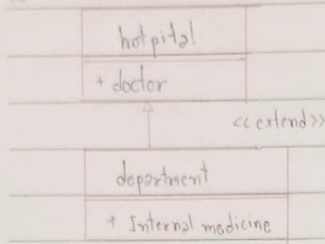 hotpital
+ doctor
<<extend>>
department
+ Internal medicine